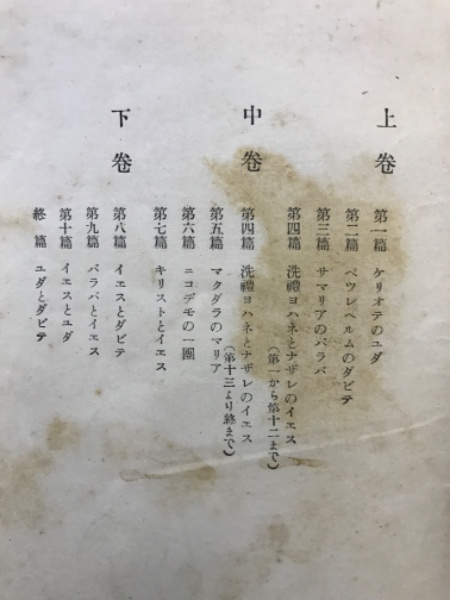 上卷
第一篇 ケリオテのユダ
第二篇 ベツレヘルムのダビテ
第三篇 サマリアのバラバ
第四篇 洗禮ヨハネとナザレのイエス
(第一から第十二まで)
中卷
第四篇 洗禮ヨハネとナザレのイエス
(第十三より終まで)
第五篇 マクダラのマリア
第六篇 ニコデモの一團
第七篇 キリストとイエス
下卷
第八篇 イエスとダビテ
第九篇 バラバとイエス
第十篇 イエスとユダ
終篇 ユダとダビテ